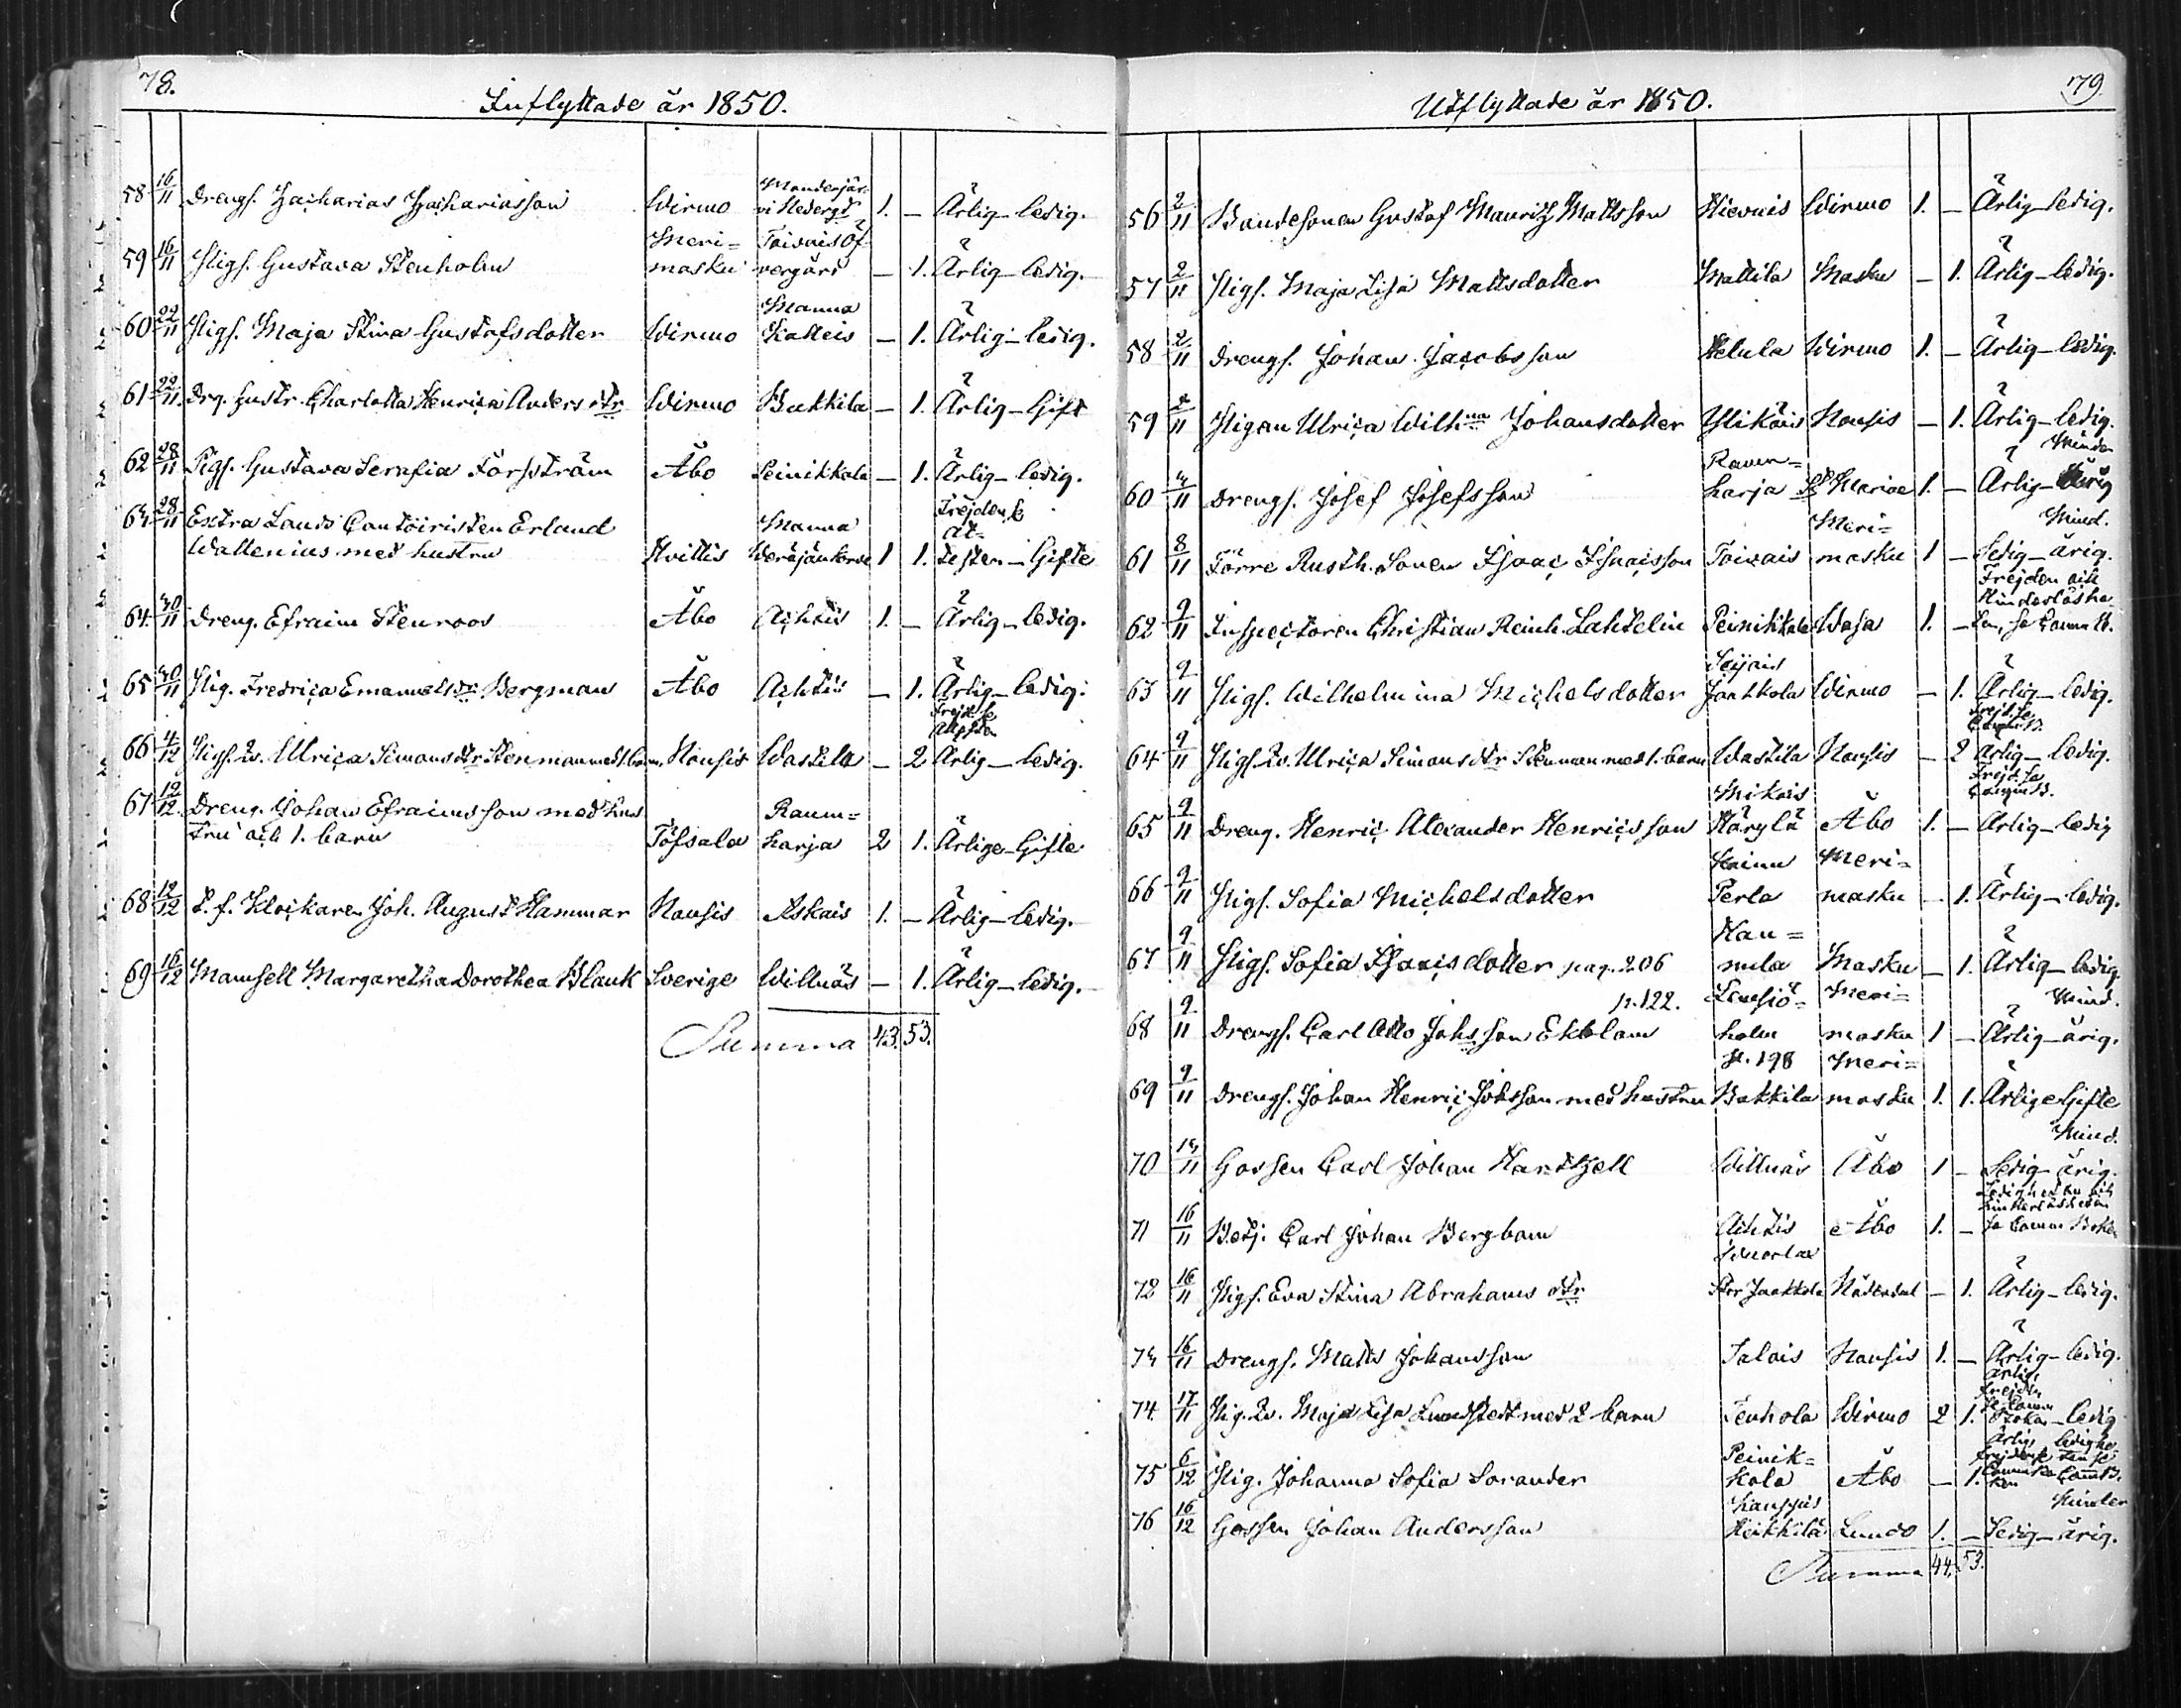 78.
Inflyttade år 1850.
58 16/11 Drengs. Zacharias Zachariasson Wirmo Monderjär-vi Nedergd 1. - Ärlig - ledig.
59 16/11 Pigs. Gustava Stenholm Meri=masku Taivais Öf-vergård - 1. Ärlig - ledig.
60 22/11 Pigs. Maja Stina Gustafsdotter Wirmo Manna Katteis - 1. Ärlig - ledig.
61 22/11 Drg. hustr. Charlotta Henrica Anders dtr Wirmo Bukkila - 1. Ärlig - Gift
62 28/11 Pigs. Gustava Serafia Forsström Åbo Peinikkala - 1. Ärlig - ledig.
63 28/11 Extra Lands Contoiristen Erland
Wallenius med hustru Hvittis Manna Weräjänkorva 1 1. Frejden se At=testen - Gifte
64 30/11 Dreng. Efraim Stenroos Åbo Achtis 1. - Ärlig - ledig.
65 30/11 Pig. Fredrica Emanuels dr Bergman Åbo Achtis - 1. Ärlig - ledig.
66 4/12 Pigs. Ulrica Simons dtr Stenman med 1. barn Nousis Wastila - 2 Frejd. se Attesten Ärlig - ledig.
67 12/12 Dreng. Johan Efraimsson med hus
tru och 1. barn Töfsala Raum=harja 2 1. Ärlige - Gifte
68 12/12 t. f. Klockaren Joh. August Hammar Nousis Askais 1. - Ärlig - ledig.
69 16/12 Mamsell Margaretha Dorothea Blauk Sverige Willnäs - 1. Ärlig - ledig.
Summa 43. 53.
179
Utflyttade år 1850.
56 2/11 Bondesonen Gustaf Mauritz Mattsson Hievais Wirmo 1. - Ärlig - ledig.
57 2/11 Pigs. Maja Lisa Mattsdotter Mattila Masku - 1. Ärlig - ledig.
58 2/11 Drengs. Johan Jacobsson Welula Wirmo 1. - Ärlig - ledig.
59 2/11 Pigan Ulrica Wilhna Johansdotter Ylikäis Nousis - 1. Ärlig - ledig.
60 3/11 Drengs. Josef Josefsson Raum=harja St Mariae 1. - Ärlig - Minder årig
61 8/11 Förre Rusth. Sonen Isaac Isaacsson Taivais Meri=masku 1 - Ledig - Mind. årig.
62 9/11 Inspectoren Christian Reinh. Lahtelin Peinikkala Wasa 1. - Frejden och Hinderlöshe-ten, se Comm B.
63 9/11 Pigs. Wilhelmina Michelsdotter Seijais Jaakkola Wirmo - 1. Ärlig - ledig.
64 9/11 Pigs. Ulrica Simons dtr Stenman med 1. barn Wastila Nousis - 2 Frejd. se Comm B. Ärlig - ledig.
65 9/11 Dreng. Henric Alexander Henricsson Mikois Härylä Åbo 1. - Frejd. se Comm B. Ärlig - ledig
66 9/11 Pigs. Sofia Michelsdotter Kainu Perla Meri=masku - 1. Ärlig - ledig.
67 9/11 Pigs. Sofia Isacsdotter pag. 206 Han=nula Masku - 1. Ärlig - ledig.
68 9/11 Drengs. Carl Otto Johsson Ekblom p. 122. Lemsiö=holm Meri=masku 1 - Ärlig - Mind. årig.
69 9/11 Drengs. Johan Henric Johsson med hustru p. 198 Bukkila Meri=masku 1. 1. Ärlige Gifte
70 13/11 Gossen Carl Johan Hartzell Willnäs Åbo 1 - Ledig - Mind. årig.
71 16/11 Betj. Carl Johan Bergbom Achtis Åbo 1. - Ledigheten och hinderlösheten se Comm Boken
72 16/11 Pigs. Eva Stina Abrahams dtr Stor Jaakkola Nådendal - 1. Ärlig - ledig.
73 16/11 Drengs. Matts Johansson Salais Nousis 1. - Ärlig - ledig.
74 17/11 Pig. Maja Lisa Lundstedt med 2 barn Tenhola Wirmo 2 1. Ärlig, frejden se Comm Boken - ledig
75 6/12 Pig. Johanna Sofia Sorander Peinik=kala Åbo - 1. Ärlig,
76 16/12 Gossen Johan Andersson Heikkilä Lundo 1. - Ledig - Minder årig.
Summa 44. 53.